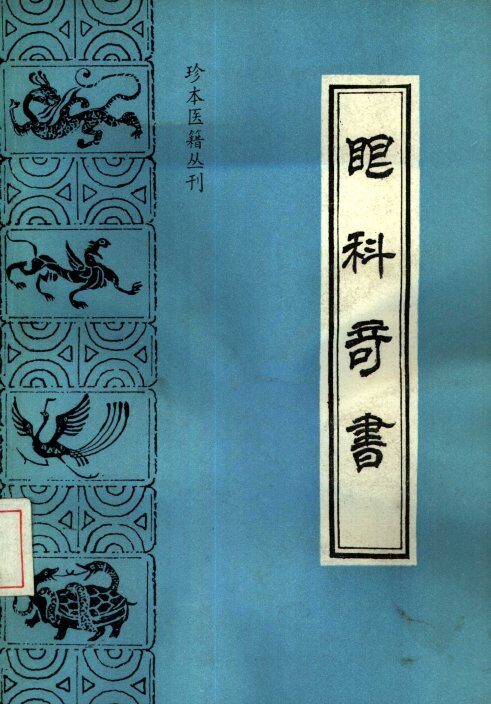 眼科奇書
珍本医籍丛刊